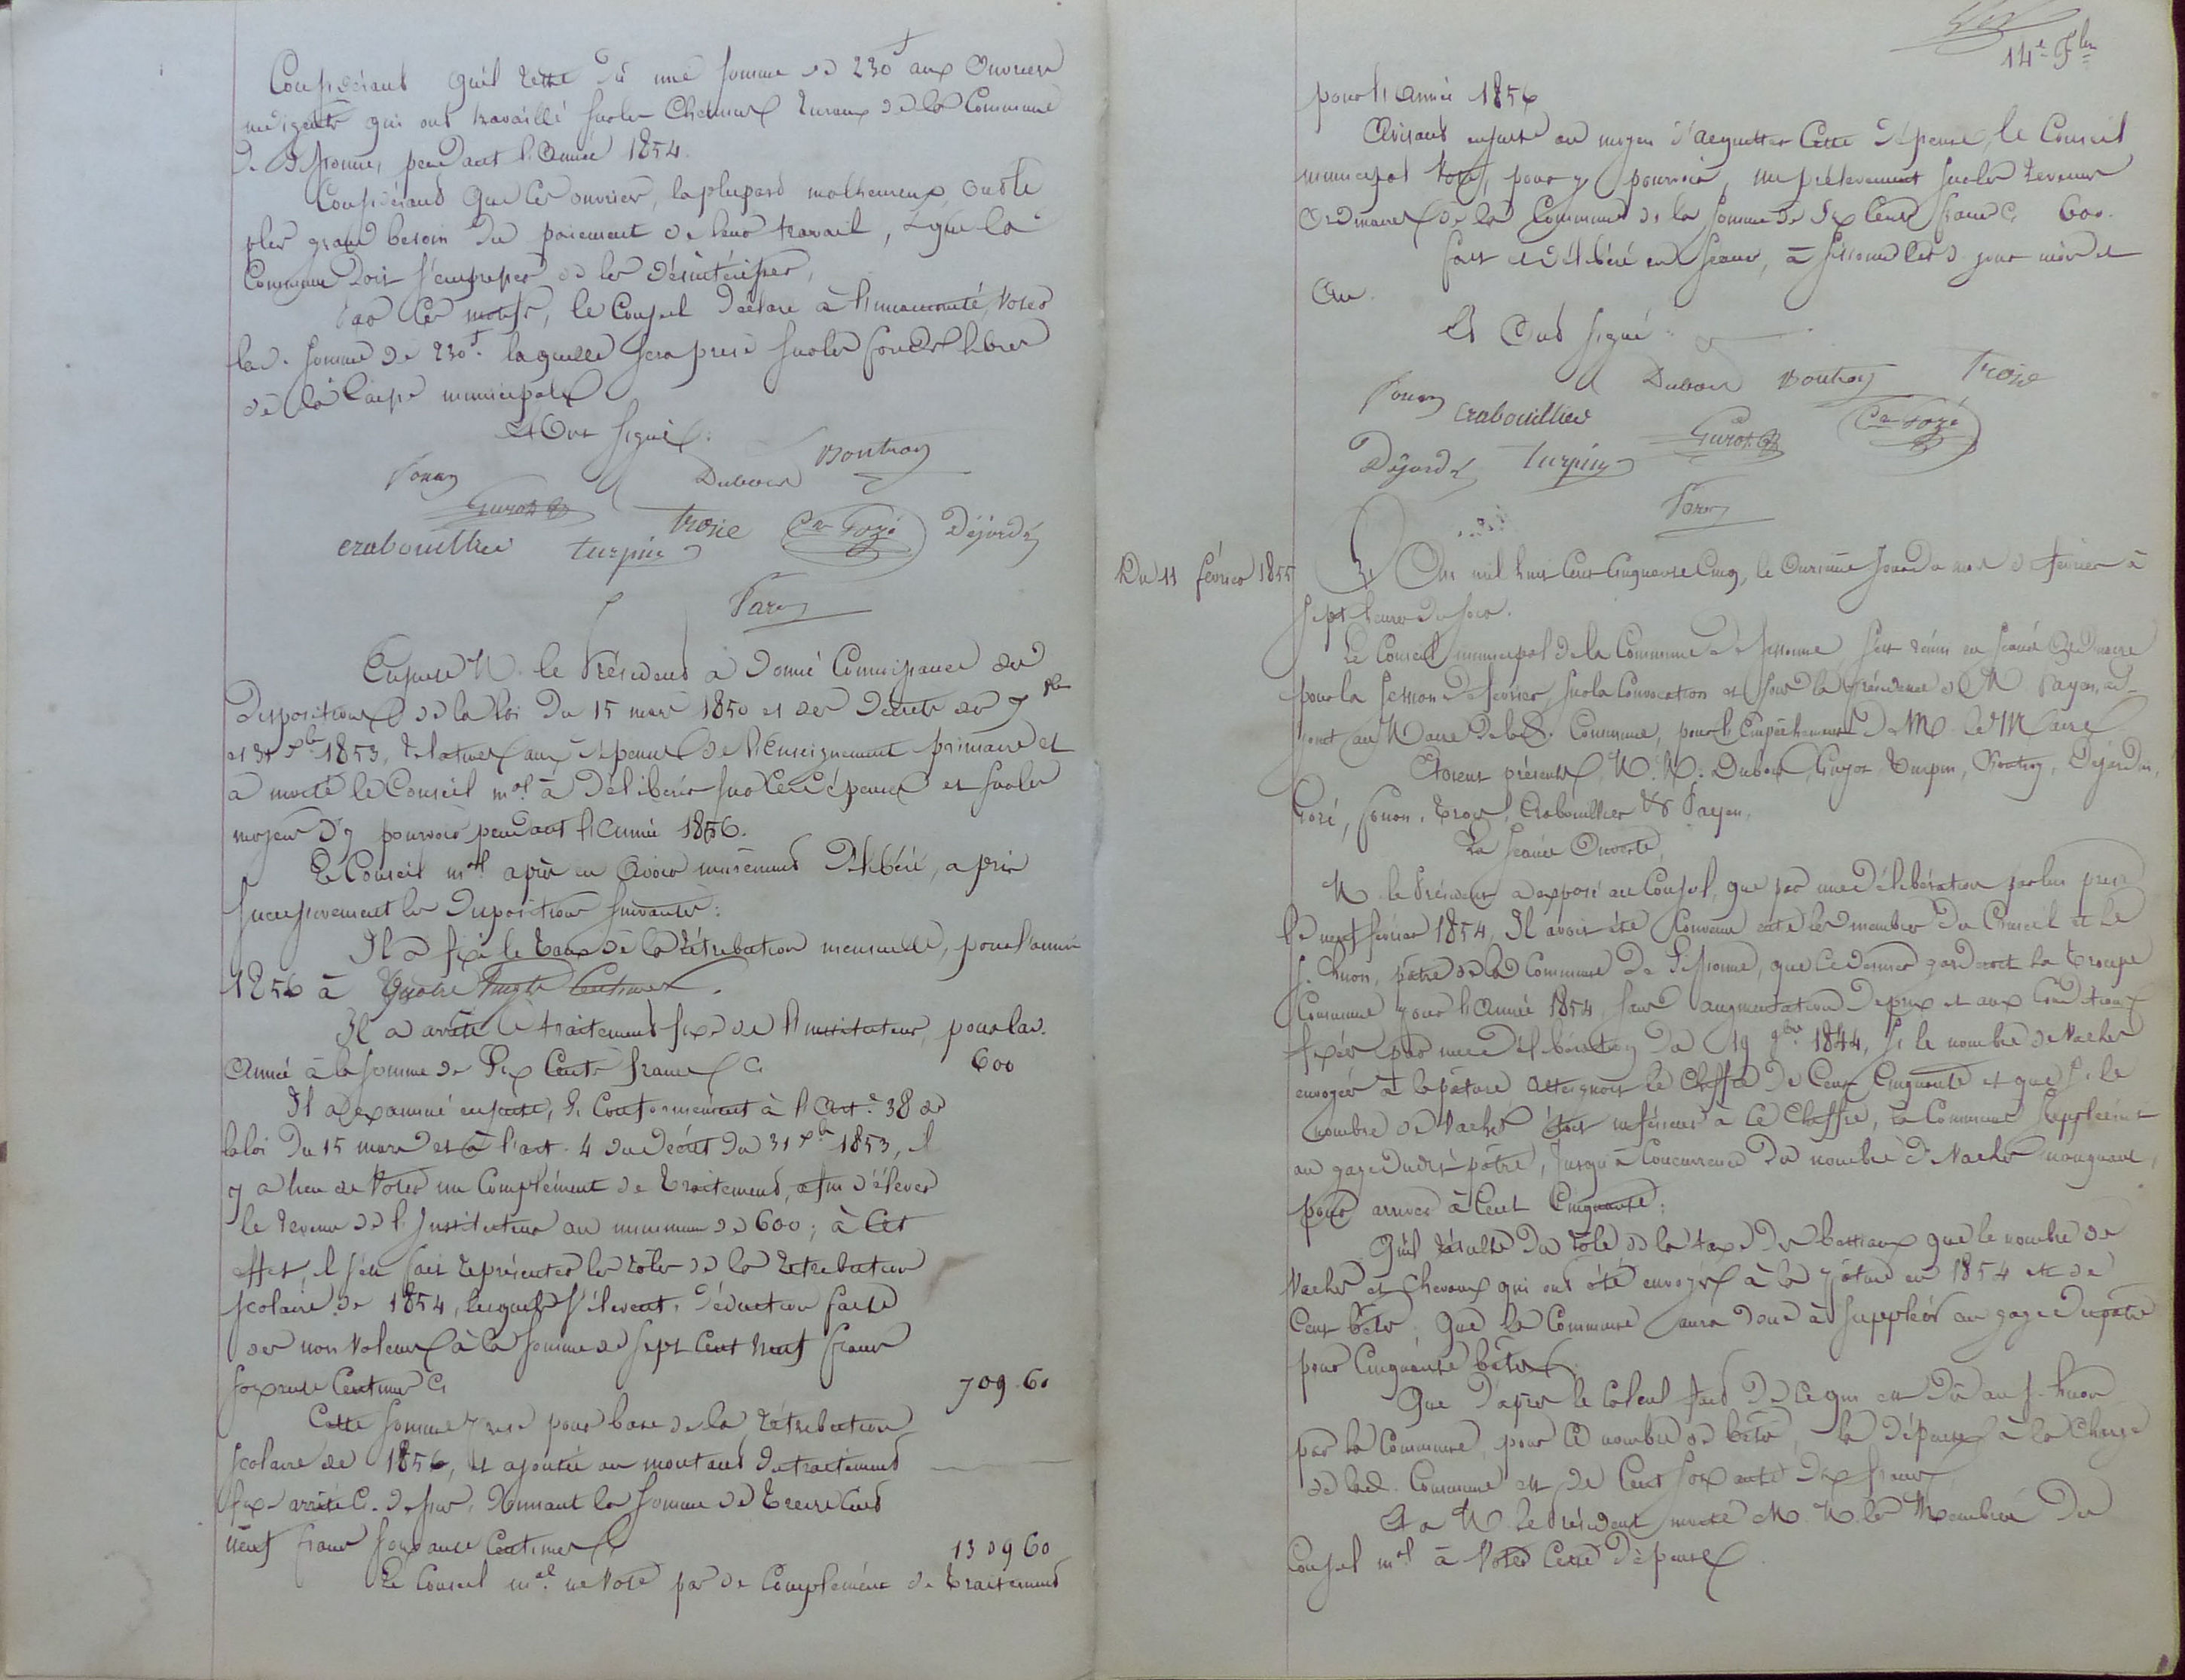 Considérant qu'il reste dû une somme de 230f aux Ouvriers
indigents qui ont travaillé sur les Chemins ruraux de la Commune
de Sissonne, pendant l'Année 1854.
Considérant que ces ouvriers, la plupard malheureux, ont le
plus grand besoin du paiement de leur travail, & que la
Commune doit s'empresser de les désintéresser,
Par ces motifs, le Conseil déclare à l'unanimité, voter
lad. somme de 230f. laquelle sera prise sur les fonds libres
de la Caisse municipale
Et Ont signé.
Fonon Dubois Boutroy
Guyot
Crabouillier Turpin Troxe Cr Gozé Déjardin
Payen
Ensuite M. le Président a donné Connaissance des
dispositions de la loi du 15 mars 1850 et des décrets des 7 8bre
et 31 Xbre 1853, relatives aux dépenses de l'Enseignement primaire et
a invité le Conseil mal à délibérer sur les dépenses et sur les
moyens d'y pourvoir pendant l'année 1856.
Le Conseil mal après en avoir mûrement délibéré, a pris
successivement les dispositions suivantes:
Il a fixé le taux de la rétribution mensuelle, pour l'année
1856 à Quatre Vingts Centimes.
Il a arrêté le traitement fixe de l'instituteur, pour lad.
Année à la somme de Six Cents francs Ci 600
Il a examiné ensuite, si Conformément à l'Art. 38 de
la loi du 15 mars et à l'art. 4 du décret du 31 Xbre 1853, il
y a lieu de voter un Complément de traitement, afin d'élever
le revenu de l'Instituteur au minimum de 600; à Cet
effet, il s'est fait représenter les rôles de la rétribution
scolaire de 1854, lesquels s'élèvent, déduction faite
des non valeurs à la somme de Sept Cent Neuf francs
soixante Centimes Ci 709.60
Cette somme prise pour base de la rétribution
scolaire de 1856, et ajoutée au montant du traitement
fixe arrêté Ci-dessus, donnant la somme de Treize Cent
neuf francs soixante Centimes Ci 1309 60
Le Conseil mal ne vote pas de Complément de traitement
14e Flet
pour l'Année 1856
Avisant ensuite au moyen d'acquitter Cette dépense, le Conseil
municipal vote, pour y pourvoir, un prélèvement sur les revenus
Ordinaires de la Commune de la somme de Six Cents francs Ci 600.
Fait et délibéré en séance, à Sissonne lesd. jour mois et
An.
Et Ont signé.
Fonon Crabouillier Dubois Boutroy Troxe
Déjardin Turpin Guyot Cr Gozé
Payen
Du 11 février 1855
L'An mil huit Cent Cinquante Cinq, le Onzième jour du mois de février à
sept heures du soir.
Le Conseil municipal de la Commune de Sissonne, s'est réuni en séance Ordinaire
pour la session de février, sur la Convocation et sous la présidence de M. Payen, ad-
joint au Maire de lad. Commune, pour l'Empêchement de M. le Maire
Etoient présents, M.M. Dubois, Guyot, Turpin, Boutroy, Déjardin,
Gozé, Fonon, Troxe, Crabouillier & Payen.
La séance Ouverte,
M. le Président a exposé au Conseil, que par une délibération par lui prise
le neuf février 1854, Il avoit été Convenu entre les membres du Conseil et le
s. Huon, pâtre de la Commune de Sissonne, que Ce dernier garderoit la troupe
Commune pour l'Année 1854 sans augmentation de prix et aux Conditions
fixées par une délibération du 19 9bre 1844, si le nombre de Vaches
envoyées à la pâture atteignoit le Chiffre de Cent Cinquante et que si le
nombre de Vaches étoit inférieur à Ce Chiffre, la Commune suppléeroit
au gage dudit pâtre, jusqu'à Concurrence du nombre de Vaches manquant,
pour arriver à Cent Cinquante;
Qu'il résulte du rôle de la taxe des bestiaux que le nombre de
Vaches et Chevaux qui ont été envoyés à la pâture en 1854 est de
Cent bêtes, Que la Commune aura donc à suppléer au gage du pâtre
pour Cinquante bêtes
Que d'après le Calcul fait de Ce qui est dû au s. Huon
par la Commune, pour Ce nombre de bêtes, la dépense à la Charge
de lad. Commune est de Cent soixante dix francs
Et a M. le Président invité M.M. les Membres du
Conseil mal à voter Cette dépense